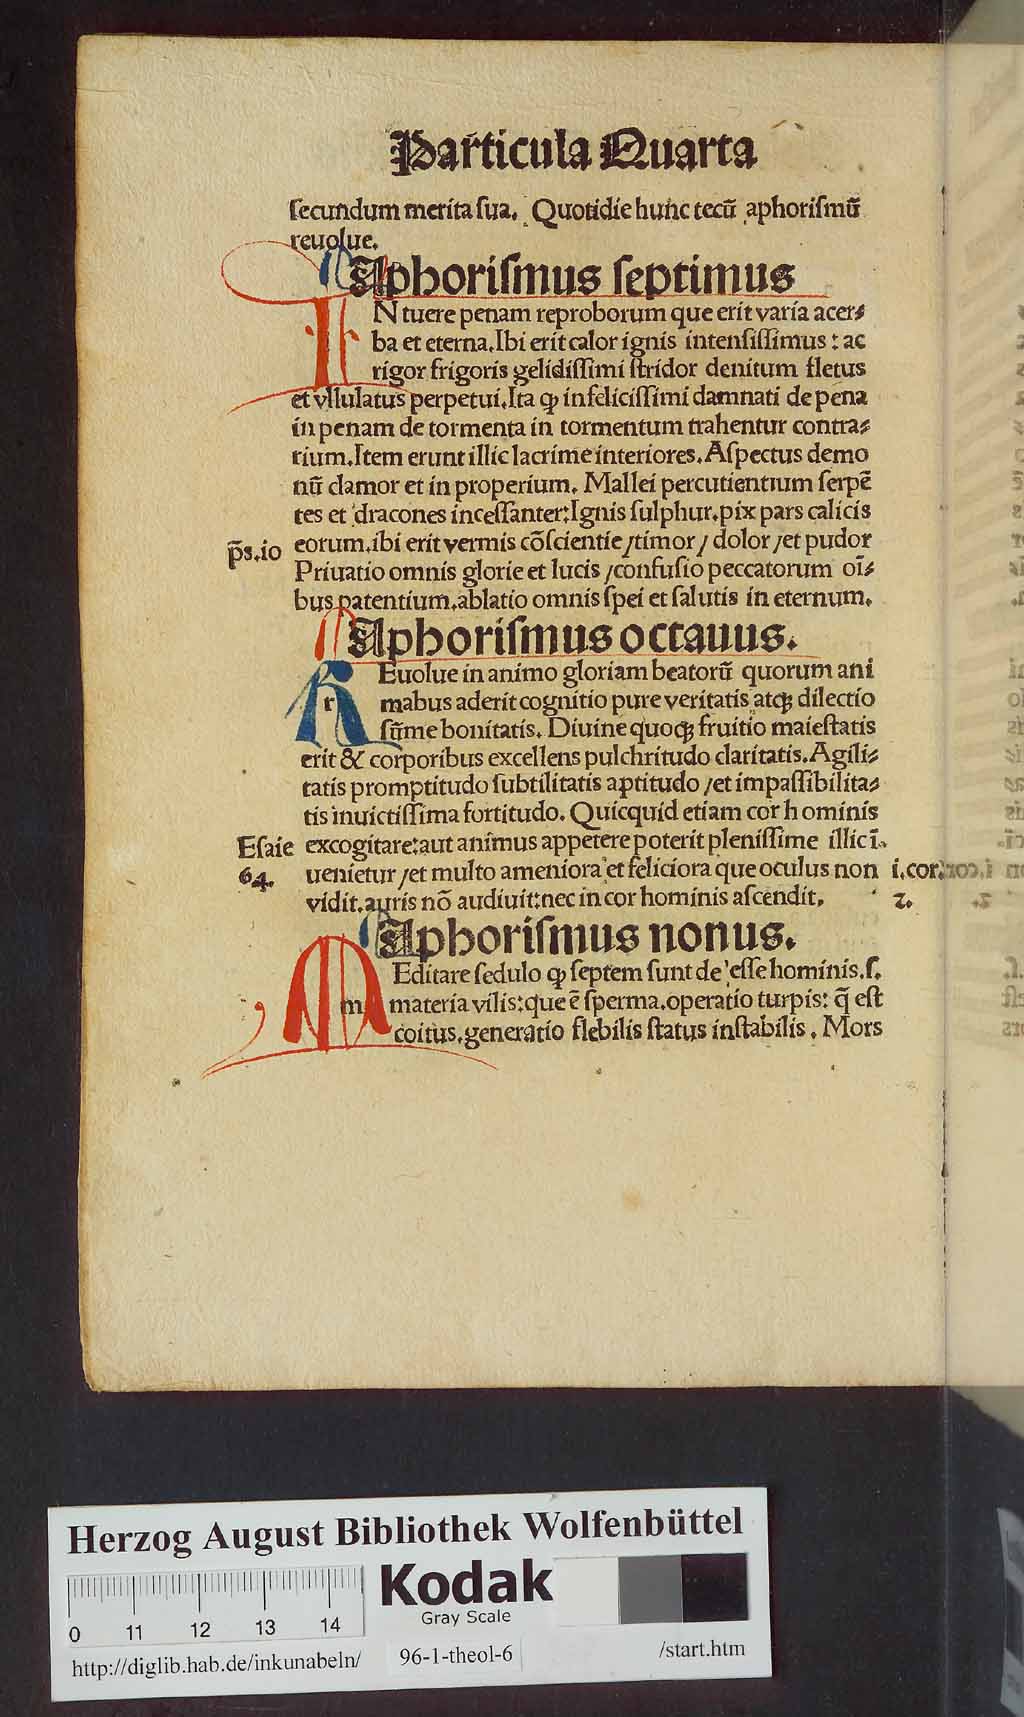 Particula Quarta
ſecundum merita ſua. Quotidie hunc tecū aphoriſmū
reuolue.
Aphoriſmus ſeptimus
IN tuere penam reproborum que erit varia acer⸗
ba et eterna. Ibi erit calor ignis intenſiſſimus: ac
rigor frigoris gelidiſſimi ſtridor denitum fletus
et vllulatus perpetui. Ita ꝙ infeliciſſimi damnati de pena
in penam de tormenta in tormentum trahentur contra⸗
rium. Item erunt illic lacrime interiores. Aſpectus demo
nū clamor et in properium. Mallei percutientium ſerpē
tes et dracones inceſſanter: Ignis ſulphur. pix pars calicis
p̄s. io
eorum. ibi erit vermis cōſcientie / timor / dolor / et pudor
Priuatio omnis glorie et lucis / confuſio peccatorum oī⸗
bus patentium. ablatio omnis ſpei et ſalutis in eternum.
Aphoriſmus octauus.
REuolue in animo gloriam beatorū quorum ani
r mabus aderit cognitio pure veritatis atqꝫ dilectio
ſūme bonitatis. Diuine quoqꝫ fruitio maieſtatis
erit & corporibus excellens pulchritudo claritatis. Agili⸗
tatis promptitudo ſubtilitatis aptitudo / et impaſſibilita⸗
tis inuictiſſima fortitudo. Quicquid etiam cor hominis
Eſaie
64.
excogitare: aut animus appetere poterit pleniſſime illic ī.
uenietur / et multo ameniora et feliciora que oculus non
i. cor.
2.
vidit. auris nō audiuit: nec in cor hominis aſcendit.
Aphoriſmus nonus.
MEditare ſedulo ꝙ ſeptem ſunt de eſſe hominis. ſ.
m materia vilis: que ē ſperma. operatio turpis: q̄ eſt
coitus. generatio flebilis ſtatus inſtabilis. Mors
Herzog August Bibliothek Wolfenbüttel
0 11 12 13 14
Kodak
Gray Scale
http://diglib.hab.de/inkunabeln/ 96-1-theol-6 /start.htm